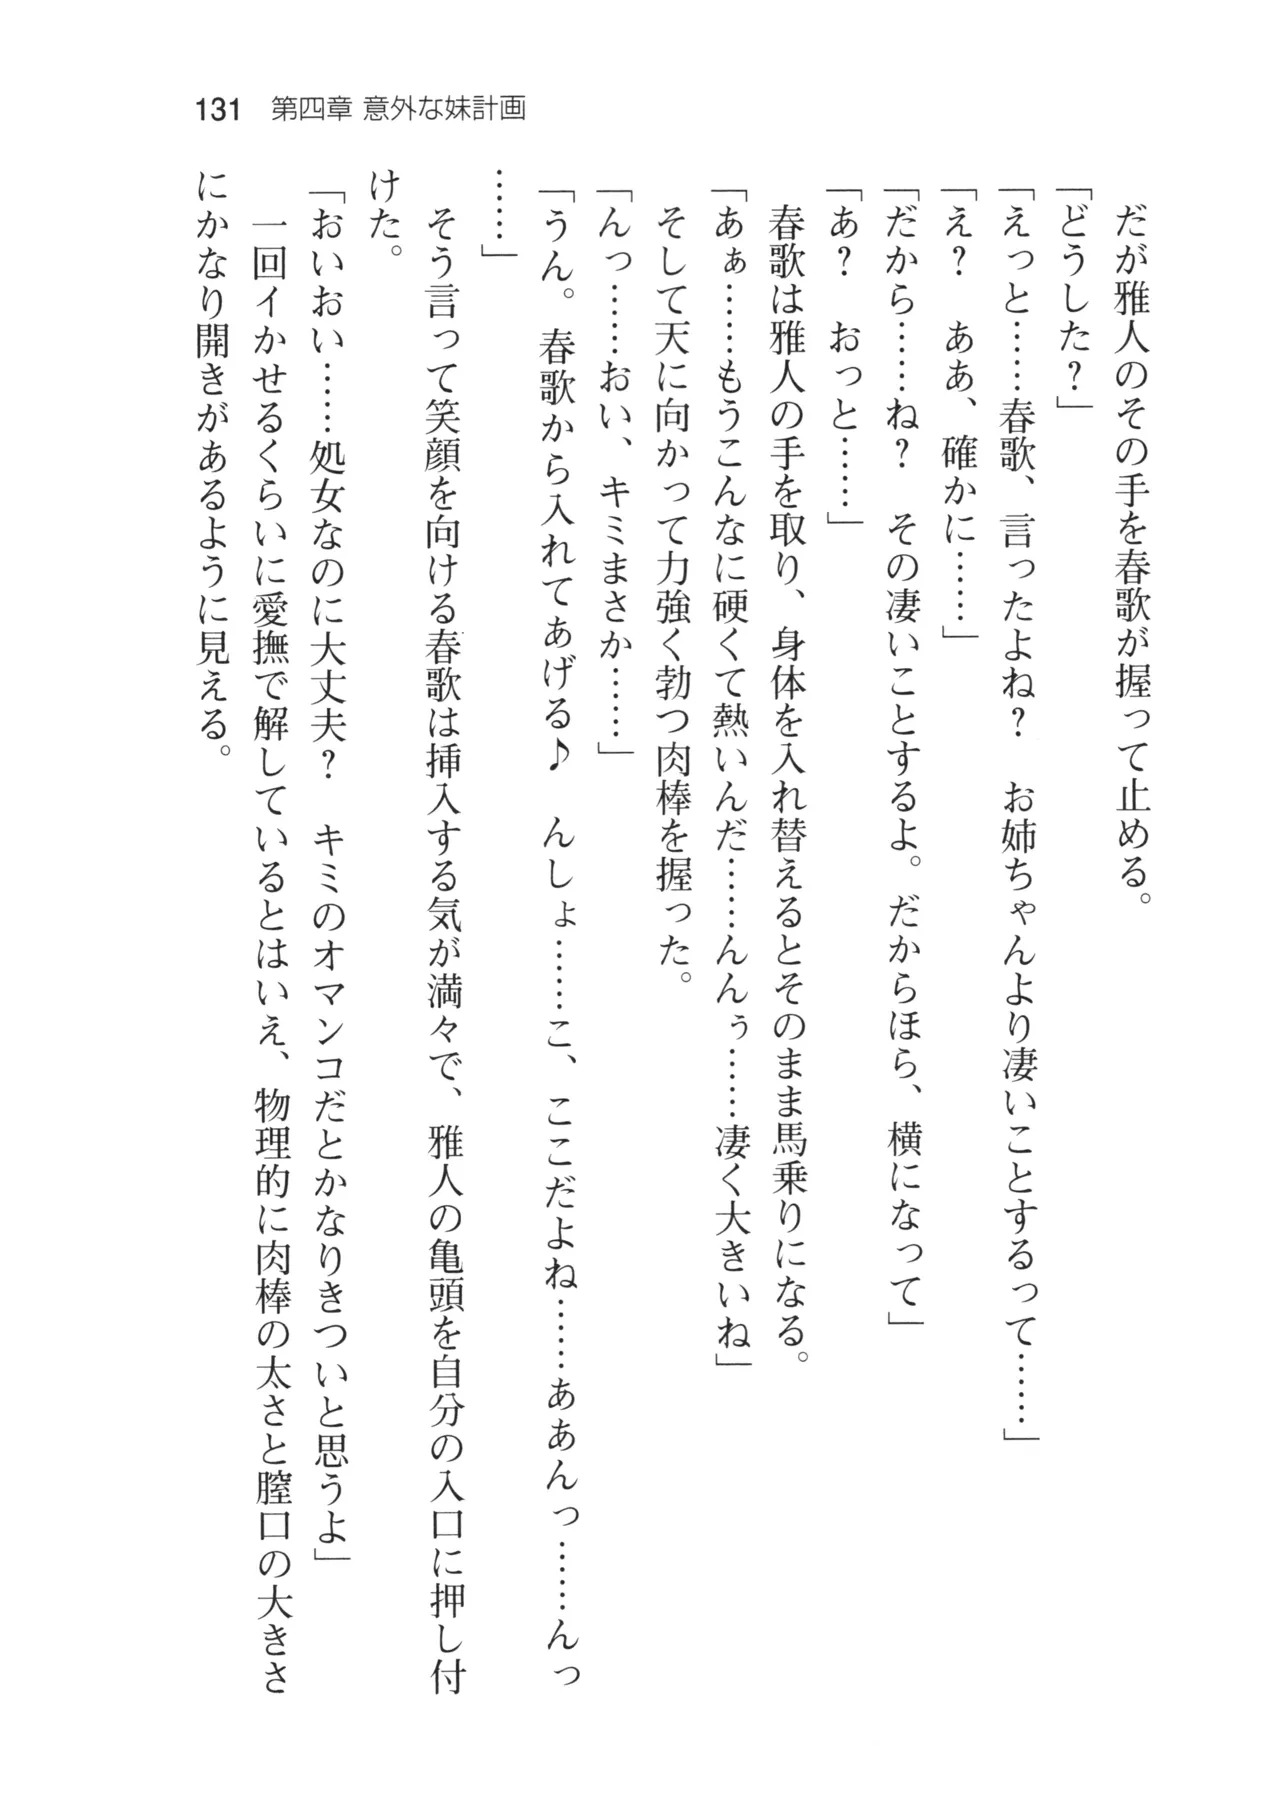 131 第四章 意外な妹計画
だが雅人のその手を春歌が握って止める。
「どうした？」
「えっと……春歌、言ったよね？　お姉ちゃんより凄いことするって……」
「え？　ああ、確かに……」
「だから……ね？　その凄いことするよ。だからほら、横になって」
「あ？　おっと……」
春歌は雅人の手を取り、身体を入れ替えるとそのまま馬乗りになる。
「あぁ……もうこんなに硬くて熱いんだ……んんぅ……凄く大きいね」
そして天に向かって力強く勃つ肉棒を握った。
「んっ……おい、キミまさか……」
「うん。春歌から入れてあげる♪　んしょ……こ、ここだよね……ああんっ……んっ
……」
そう言って笑顔を向ける春歌は挿入する気が満々で、雅人の亀頭を自分の入口に押し付
けた。
「おいおい……処女なのに大丈夫？　キミのオマンコだとかなりきついと思うよ」
一回イかせるくらいに愛撫で解しているとはいえ、物理的に肉棒の太さと膣口の大きさ
にかなり開きがあるように見える。